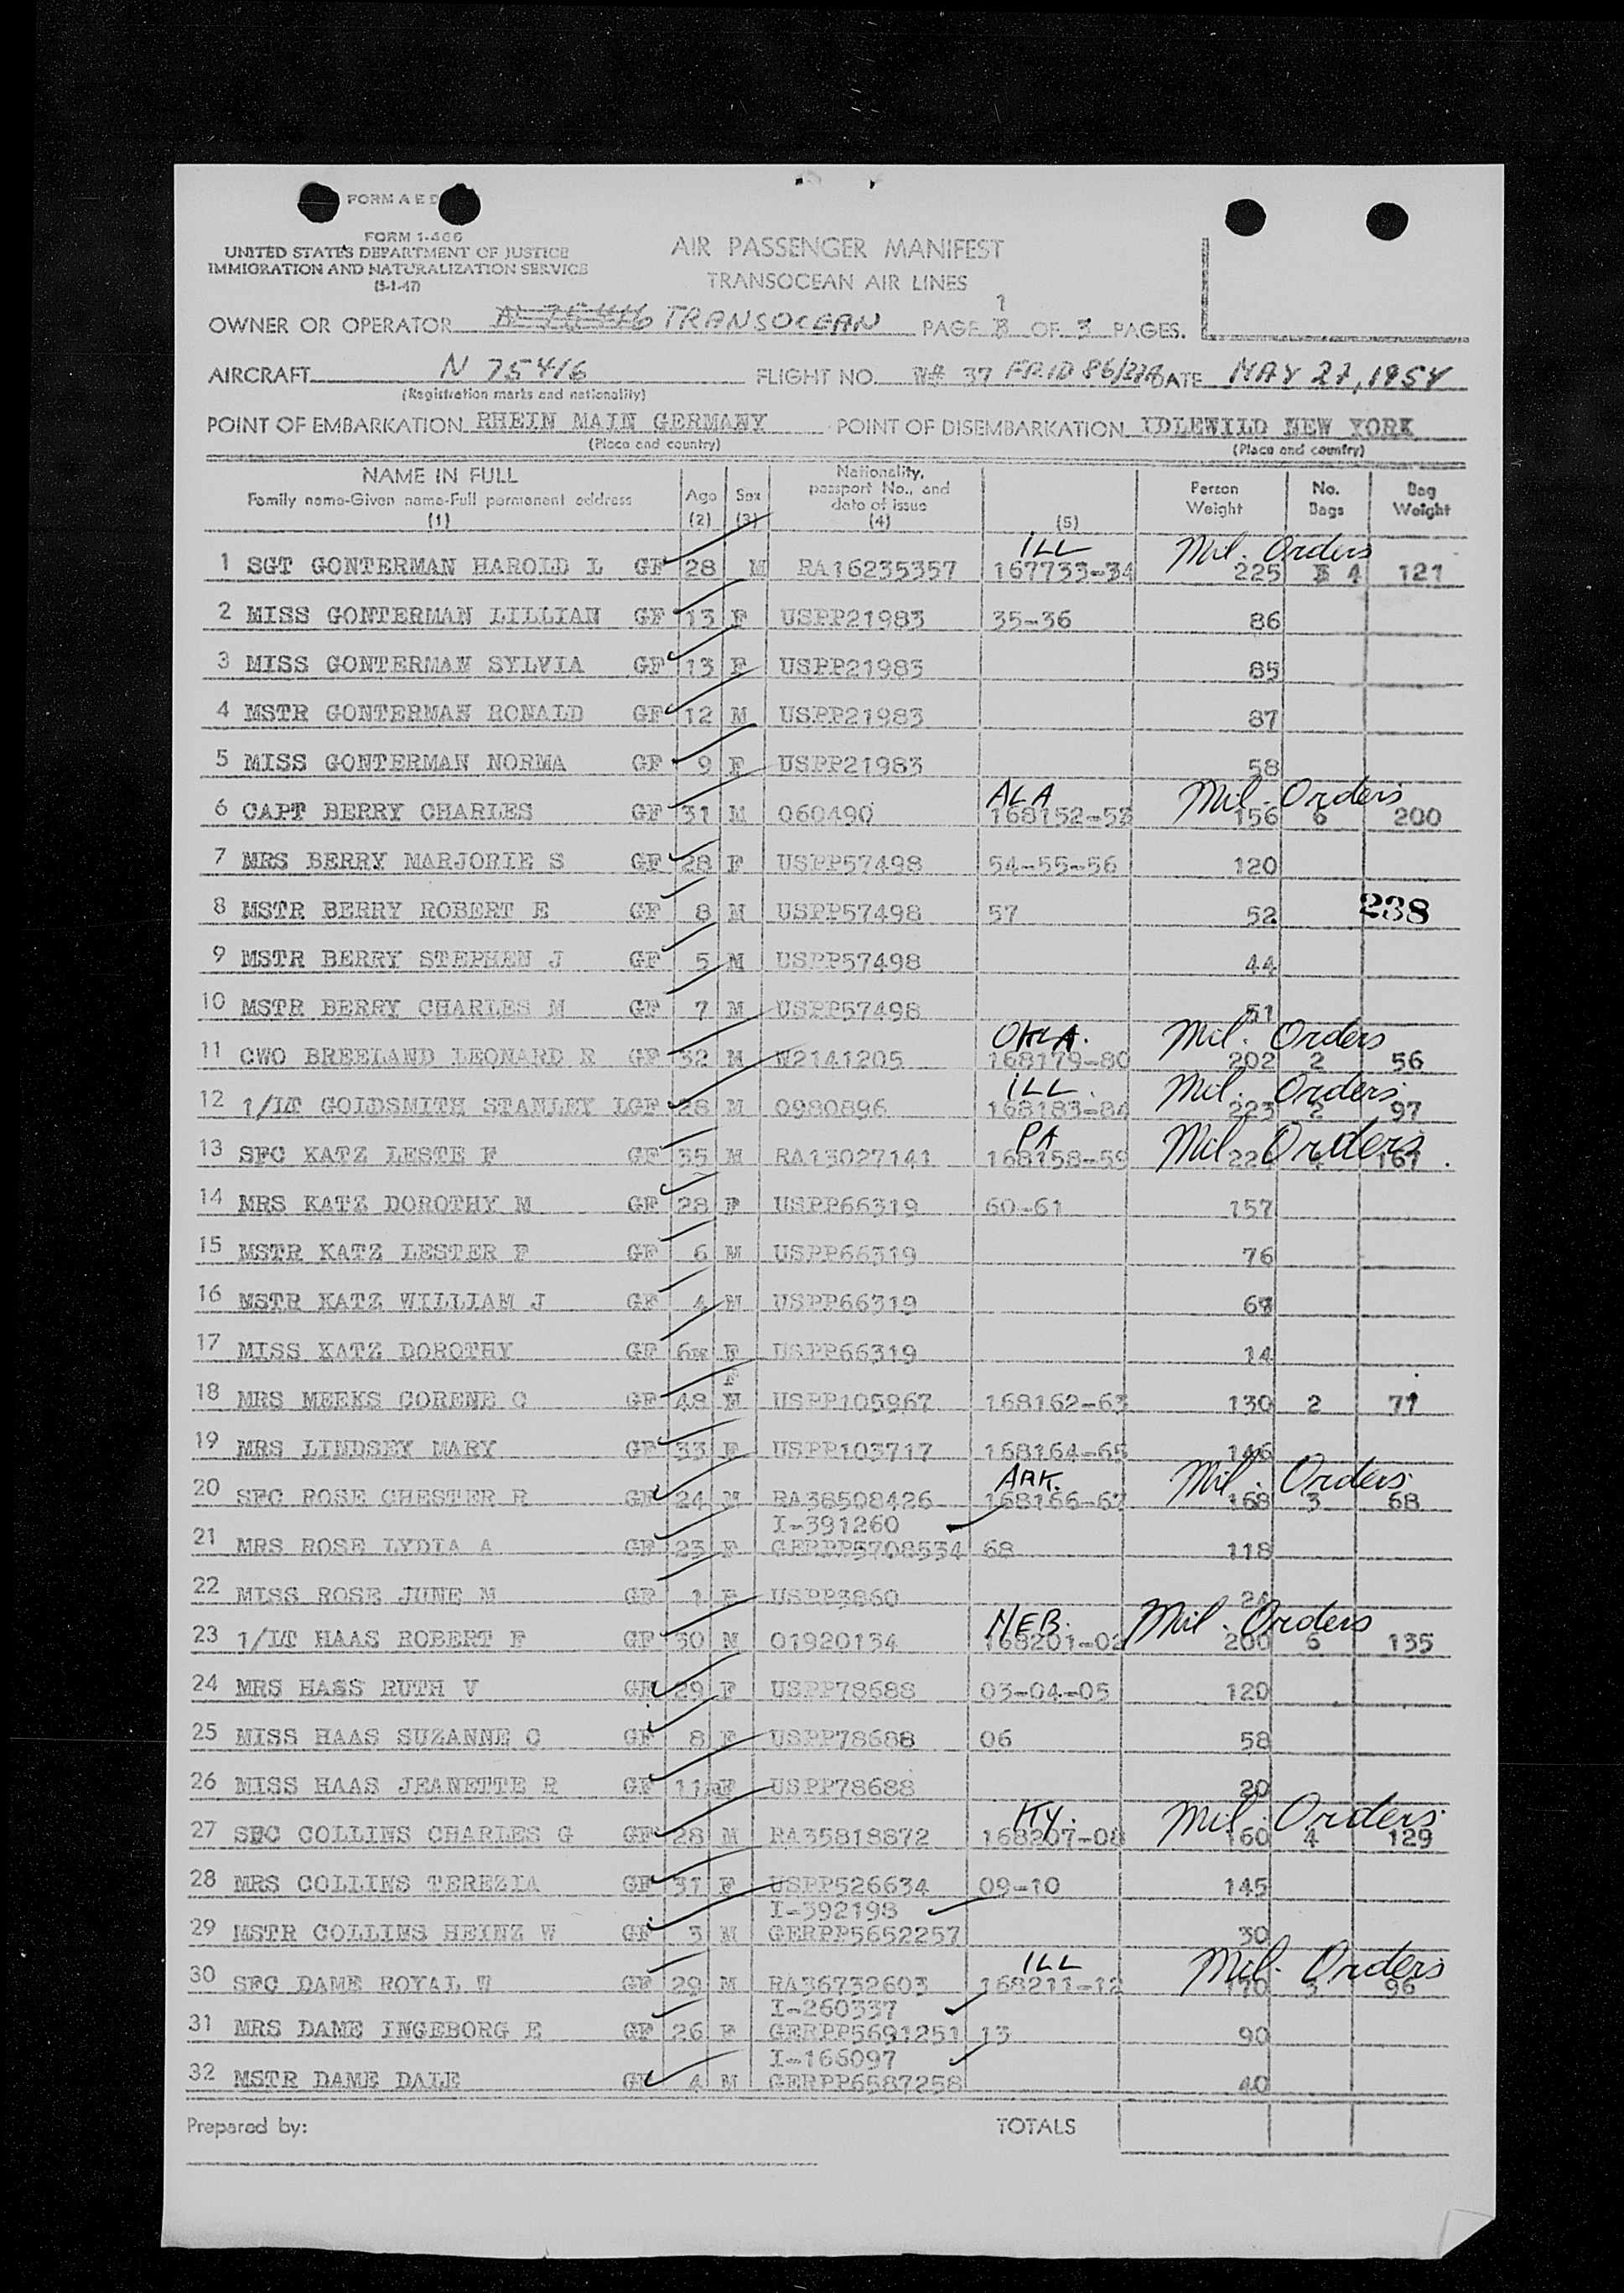 FORM A E D
FORM 1-466
UNITED STATES DEPARTMENT OF JUSTICE
IMMIGRATION AND NATURALIZATION SERVICE
(5-1-47)
AIR PASSENGER MANIFEST
TRANSOCEAN AIR LINES
OWNER OR OPERATOR TRANSOCEAN PAGE 1 OF 3 PAGES.
AIRCRAFT N 75416 FLIGHT NO. 37 FRID 86/27A DATE MAY 27, 1954
(Registration marks and nationality)
POINT OF EMBARKATION RHEIN MAIN GERMANY POINT OF DISEMBARKATION IDLEWILD NEW YORK
(Place and country) (Place and country)
NAME IN FULL Family name-Given name-Full permanent address (1) Age (2) Sex (3) Nationality, passport No., and date of issue (4) (5) Person Weight No. Bags Bag Weight
ILL Mil. Orders
1 SGT GONTERMAN HAROLD L GF 28 M RA16235357 167733-34 225 4 121
2 MISS GONTERMAN LILLIAN GF 13 F USPP21983 35-36 86
3 MISS GONTERMAN SYLVIA GF 13 F USPP21983 85
4 MSTR GONTERMAN RONALD GF 12 M USPP21983 87
5 MISS GONTERMAN NORMA GF 9 F USPP21983 58
ALA Mil. Orders
6 CAPT BERRY CHARLES GF 31 M 060490 168152-53 156 6 200
7 MRS BERRY MARJORIE S GF 28 F USPP57498 54-55-56 120
8 MSTR BERRY ROBERT E GF 8 M USPP57498 57 52 238
9 MSTR BERRY STEPHEN J GF 5 M USPP57498 44
10 MSTR BERRY CHARLES M GF 7 M USPP57498 51
OKLA. Mil. Orders
11 CWO BREELAND LEONARD R GF 32 M W2141205 168179-80 202 2 56
ILL. Mil. Orders
12 1/LT GOLDSMITH STANLEY L GF 28 M 0980896 168183-84 223 2 97
PA Mil. Orders
13 SFC KATZ LESTE F GF 35 M RA13027141 168158-59 4 167
14 MRS KATZ DOROTHY M GF 28 F USPP66319 60-61 157
15 MSTR KATZ LESTER F GF 6 M USPP66319 76
16 MSTR KATZ WILLIAM J GF 4 M USPP66319
17 MISS KATZ DOROTHY GF 6w F USPP66319 14
F
18 MRS MEEKS CORENE C GF 48 M USPP105967 168162-63 130 2 71
19 MRS LINDSEY MARY GF 33 F USPP103717 168164-65 146
ARK. Mil. Orders
20 SFC ROSE CHESTER R GF 24 M RA38508426 168166-67 168 3 68
I-391260
21 MRS ROSE LYDIA A GF 23 F GERPP5708534 68 118
22 MISS ROSE JUNE M GF 1 F USPP3860 24
NEB. Mil. Orders
23 1/LT HAAS ROBERT F GF 30 M 01920134 168201-02 200 6 135
24 MRS HASS RUTH V GF 29 F USPP78688 03-04-05 120
25 MISS HAAS SUZANNE C GF 8 F USPP78688 06 58
26 MISS HAAS JEANETTE R GF 11m F USPP78688 20
KY. Mil. Orders
27 SFC COLLINS CHARLES G GF 28 M RA35818872 168207-08 160 4 129
28 MRS COLLINS TEREZIA GF 31 F USPP526634 09-10 145
I-392198
29 MSTR COLLINS HEINZ W GF 3 M GERPP5652257 30
ILL Mil. Orders
30 SFC DAME ROYAL W GF 29 M RA36732603 168211-12 170 3 96
I-260337
31 MRS DAME INGEBORG E GF 26 F GERPP5691251 13 90
I-166097
32 MSTR DAME DALE GF 4 M GERPP6587258 40
Prepared by: TOTALS